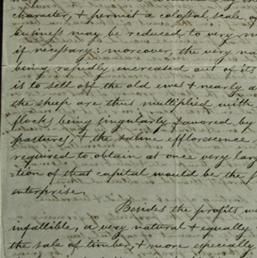 character, & permit a colossal scale of
business may be reduced to very
if necessary: moreover, the very
being rapidly encreased out of its
is to sell off the old ewes & nearly
the sheep are thus multiplied with
flocks being singularly favored by
pastures, & the saline efflorescence
required to obtain at once very
tion of that capital would be the
enterprise.
Besides the profits
infallible, a very natural & equally
the sale of timber, & more especially